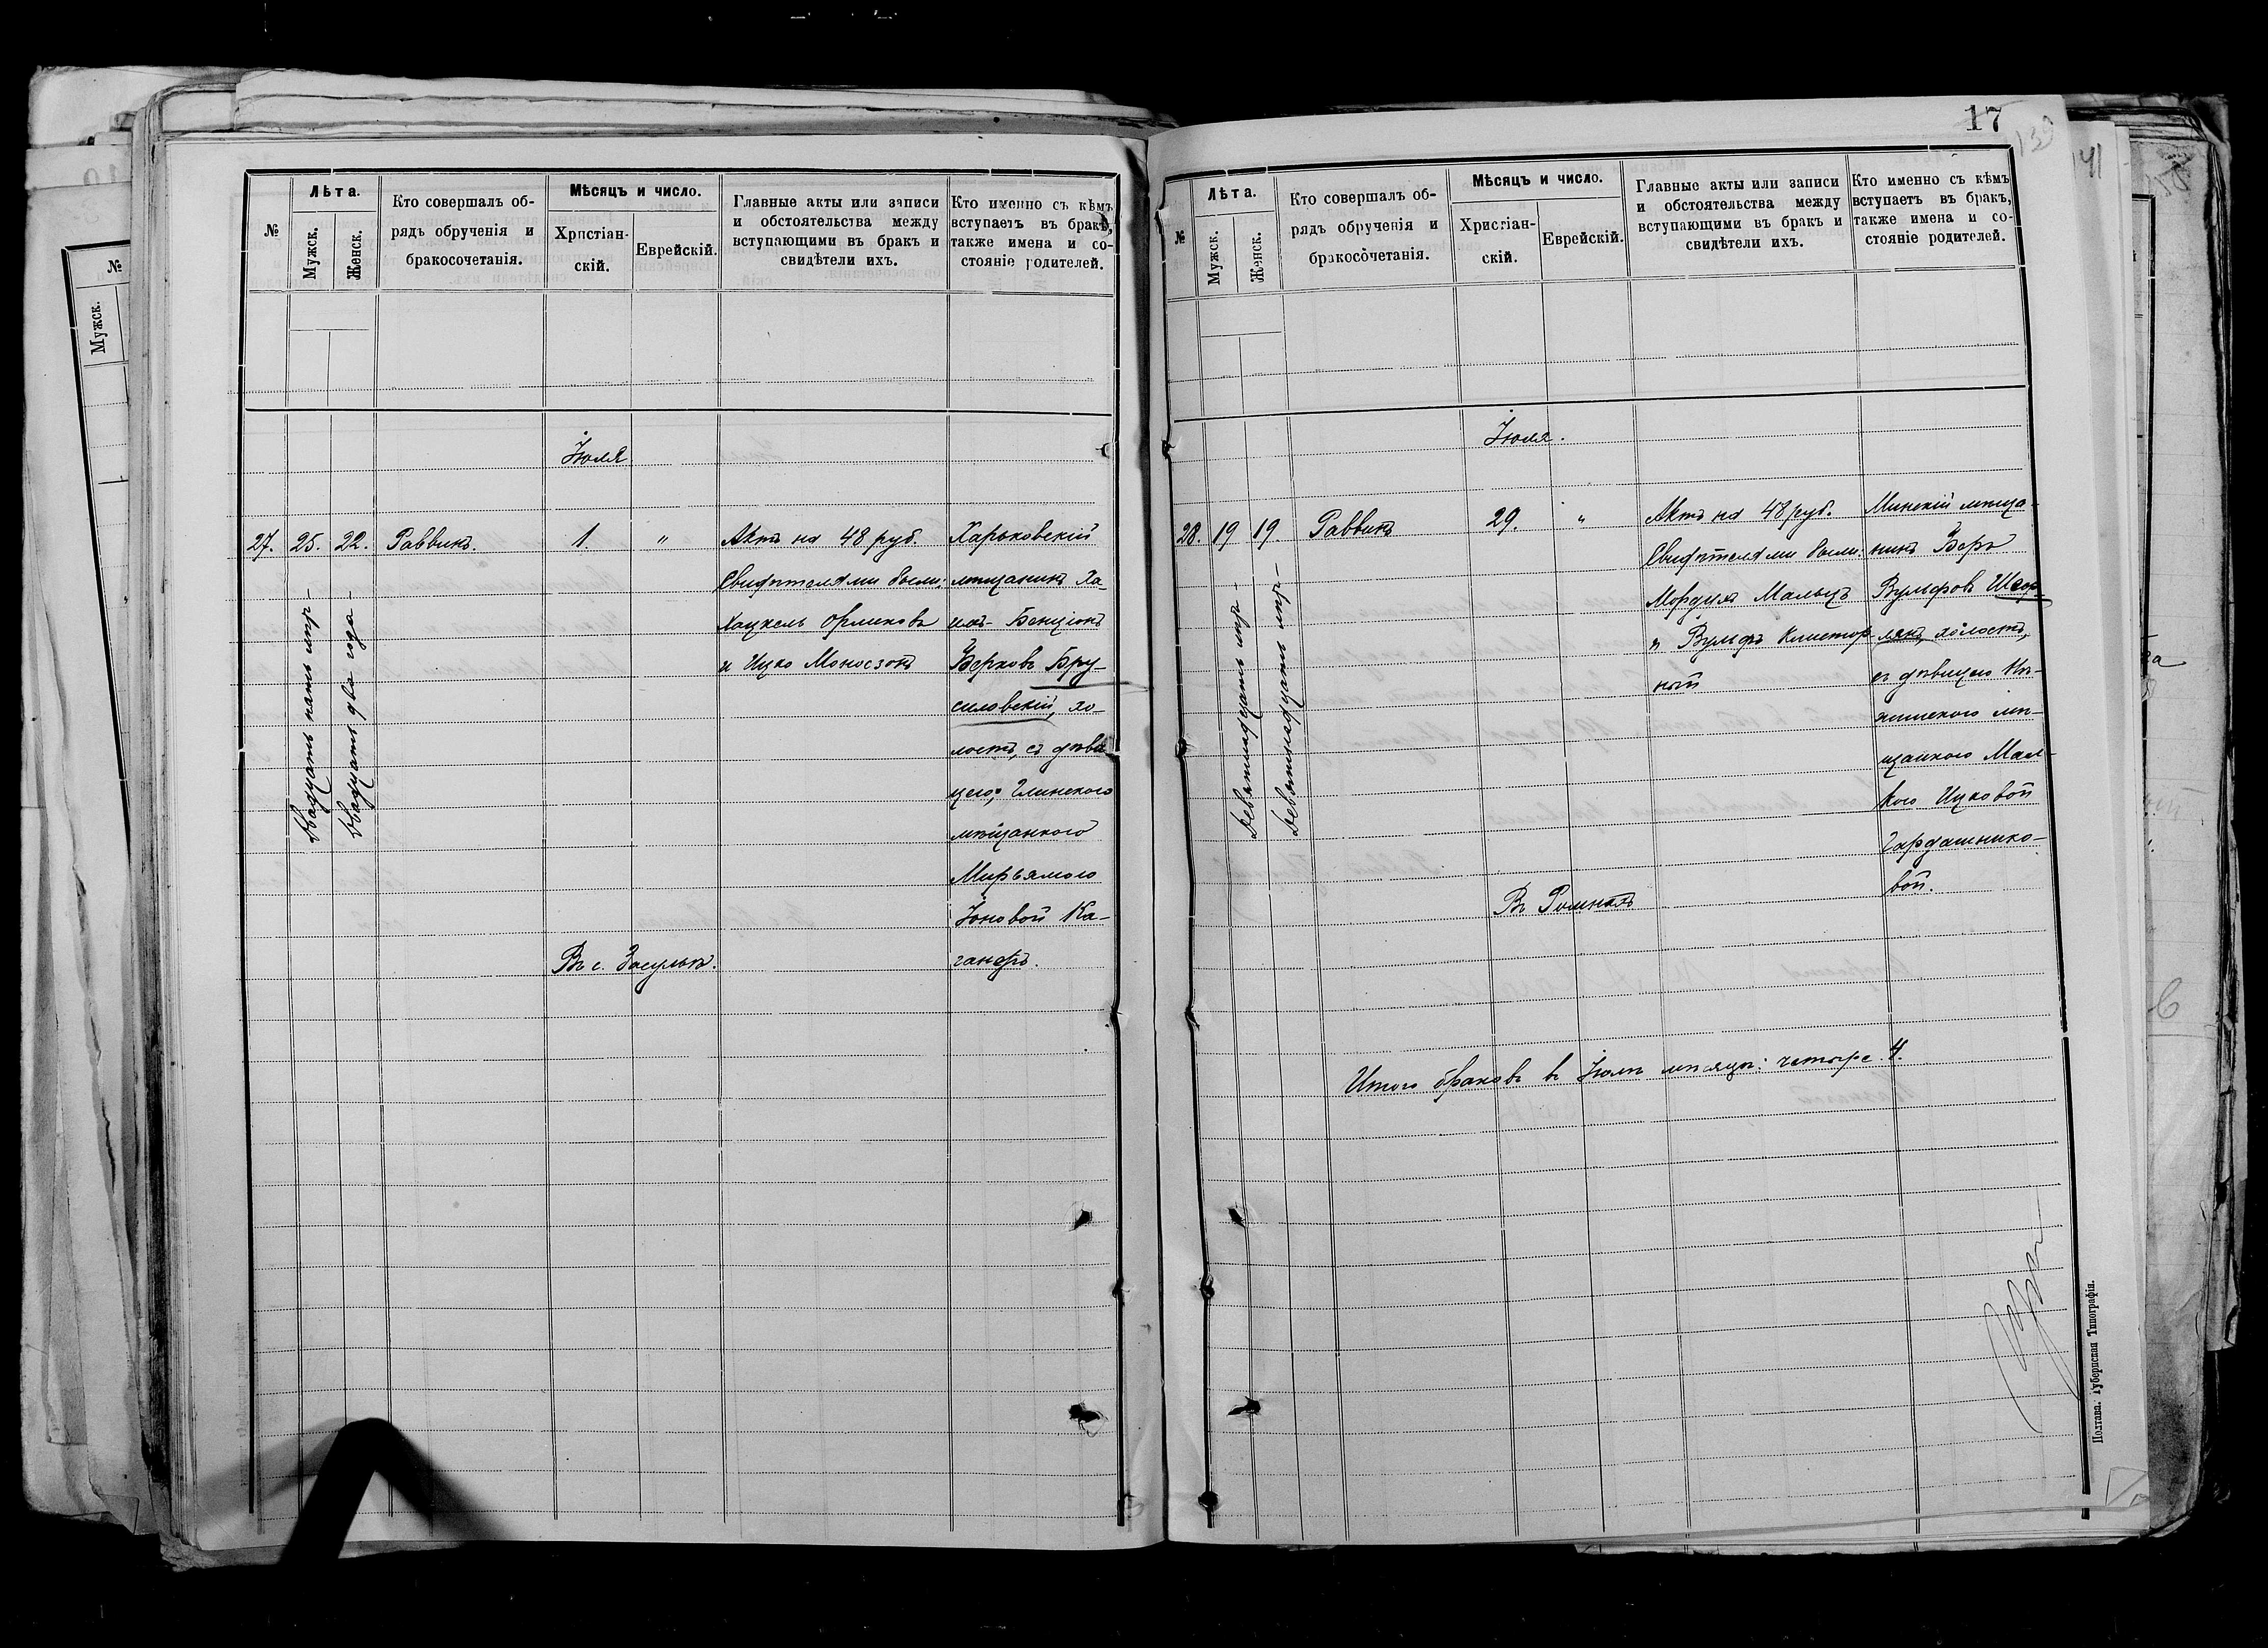 17
№
Лѣта.
Мужск.
Женск.
Кто совершалъ об-
рядъ обрученія и
бракосочетанія.
Мѣсяцъ и число.
Христіан-
скій.
Еврейскій.
Главные акты или записи
и обстоятельства между
вступающими въ бракъ и
свидѣтели ихъ.
Кто именно съ кѣмъ
вступаетъ въ бракъ,
также имена и со-
стояніе родителей.
Іюля
27. 25. 22. Раввинъ. 1 "
двадцать пять лѣтъ
двадцать два года
Актъ на 48 руб.
Свидѣтелями были:
Хацкель Орликовъ
и Ицко Моносзонъ
Харьковскій
мѣщанинъ Ха-
имъ-Бенціонъ
Берковъ Бру-
силовскій, хо-
лостъ, съ дѣви
цею, Глинскою
мѣщанкою
Мирьямою
Іоновой Ка-
ганеръ.
Въ с. Засульѣ.
№
Лѣта.
Мужск.
Женск.
Кто совершалъ об-
рядъ обрученія и
бракосочетанія.
Мѣсяцъ и число.
Христіан-
скій.
Еврейскій.
Главные акты или записи
и обстоятельства между
вступающими въ бракъ и
свидѣтели ихъ.
Кто именно съ кѣмъ
вступаетъ въ бракъ,
также имена и со-
стояніе родителей.
Іюля.
28. 19 19. Раввинъ 29. "
Девятнадцать лѣтъ
Девятнадцать лѣтъ
Актъ на 48 руб.
Свидѣтелями были:
Мордухъ Мальцъ
и Вульфъ
ный
Минскій мѣща-
нинъ Беръ
Вульфовъ
холостъ,
съ дѣвицею Нѣ-
жинскою мѣ-
щанкою Мал-
кою Ицковой
Гардашнико-
вой.
Въ Ромнахъ
Итого браковъ въ Іюлѣ мѣсяцѣ: четыре 4.
Полтава. Губернская Типографія.
№
Мужск.
41